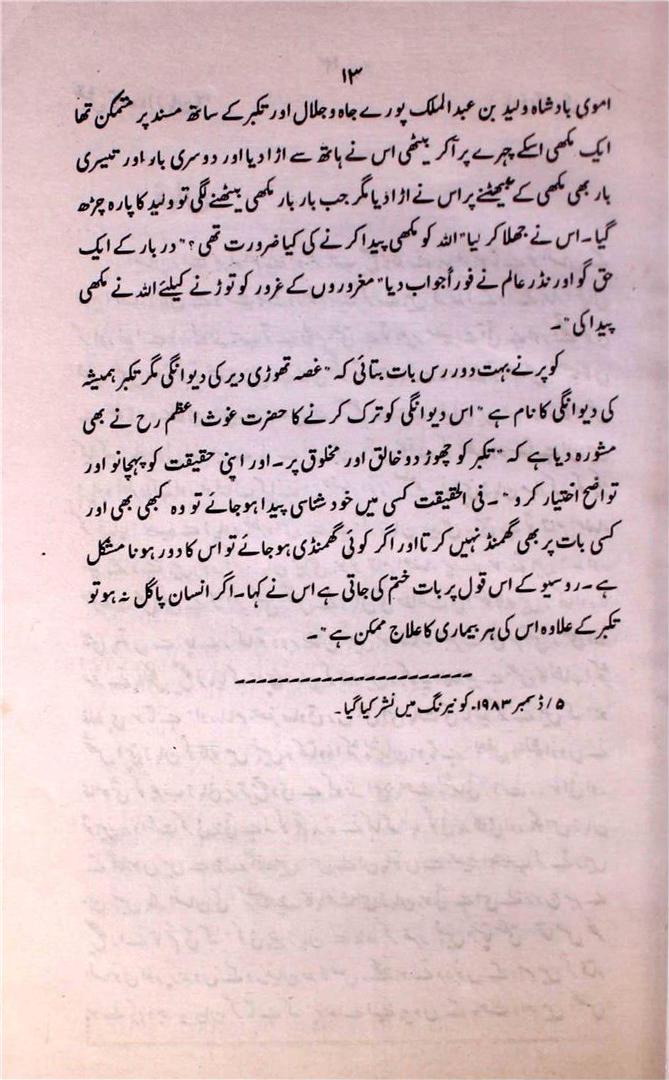 ۱۳
اموی بادشاہ ولید بن عبدالملک پورے جاہ و جلال اور تکبر کے ساتھ مسند پر متمکن تھا
ایک مکھی اسکے چہرے پر آکر بیٹھی اس نے ہاتھ سے اڑا دیا اور دوسری بار اور تیسری
بار بھی مکھی کے بیٹھنے پر اس نے اڑا دیا مگر جب بار بار مکھی بیٹھنے لگی تو ولید کا پارہ چڑھ
گیا۔ اس نے جھلا کر لیا "اللہ کو مکھی پیدا کرنے کی کیا ضرورت تھی؟" دربار کے ایک
حق گو اور نڈر عالم نے فوراً جواب دیا "مغروروں کے غرور کو توڑنے کیلئے اللہ نے مکھی
پیدا کی"۔
کوپر نے بہت دور رس بات بتائی کہ "غصہ تھوڑی دیر کی دیوانگی مگر تکبر ہمیشہ
کی دیوانگی کا نام ہے" اس دیوانگی کو ترک کرنے کا حضرت غوث اعظم رح نے بھی
مشورہ دیا ہے کہ "تکبر کو چھوڑ دو خالق اور مخلوق پر۔ اور اپنی حقیقت کو پہچانو اور
تواضح اختیار کرو"۔ فی الحقیقت کسی میں خود شناسی پیدا ہو جائے تو وہ کبھی بھی اور
کسی بات پر بھی گھمنڈ نہیں کرتا اور اگر کوئی گھمنڈی ہو جائے تو اس کا دور ہونا مشکل
ہے۔ روسیو کے اس قول پر بات ختم کی جاتی ہے اس نے کہا۔ اگر انسان پاگل نہ ہو تو
تکبر کے علاوہ اس کی ہر بیماری کا علاج ممکن ہے"۔
۵ / ڈسمبر ۱۹۸۳ء کو نیرنگ میں نشر کیا گیا۔